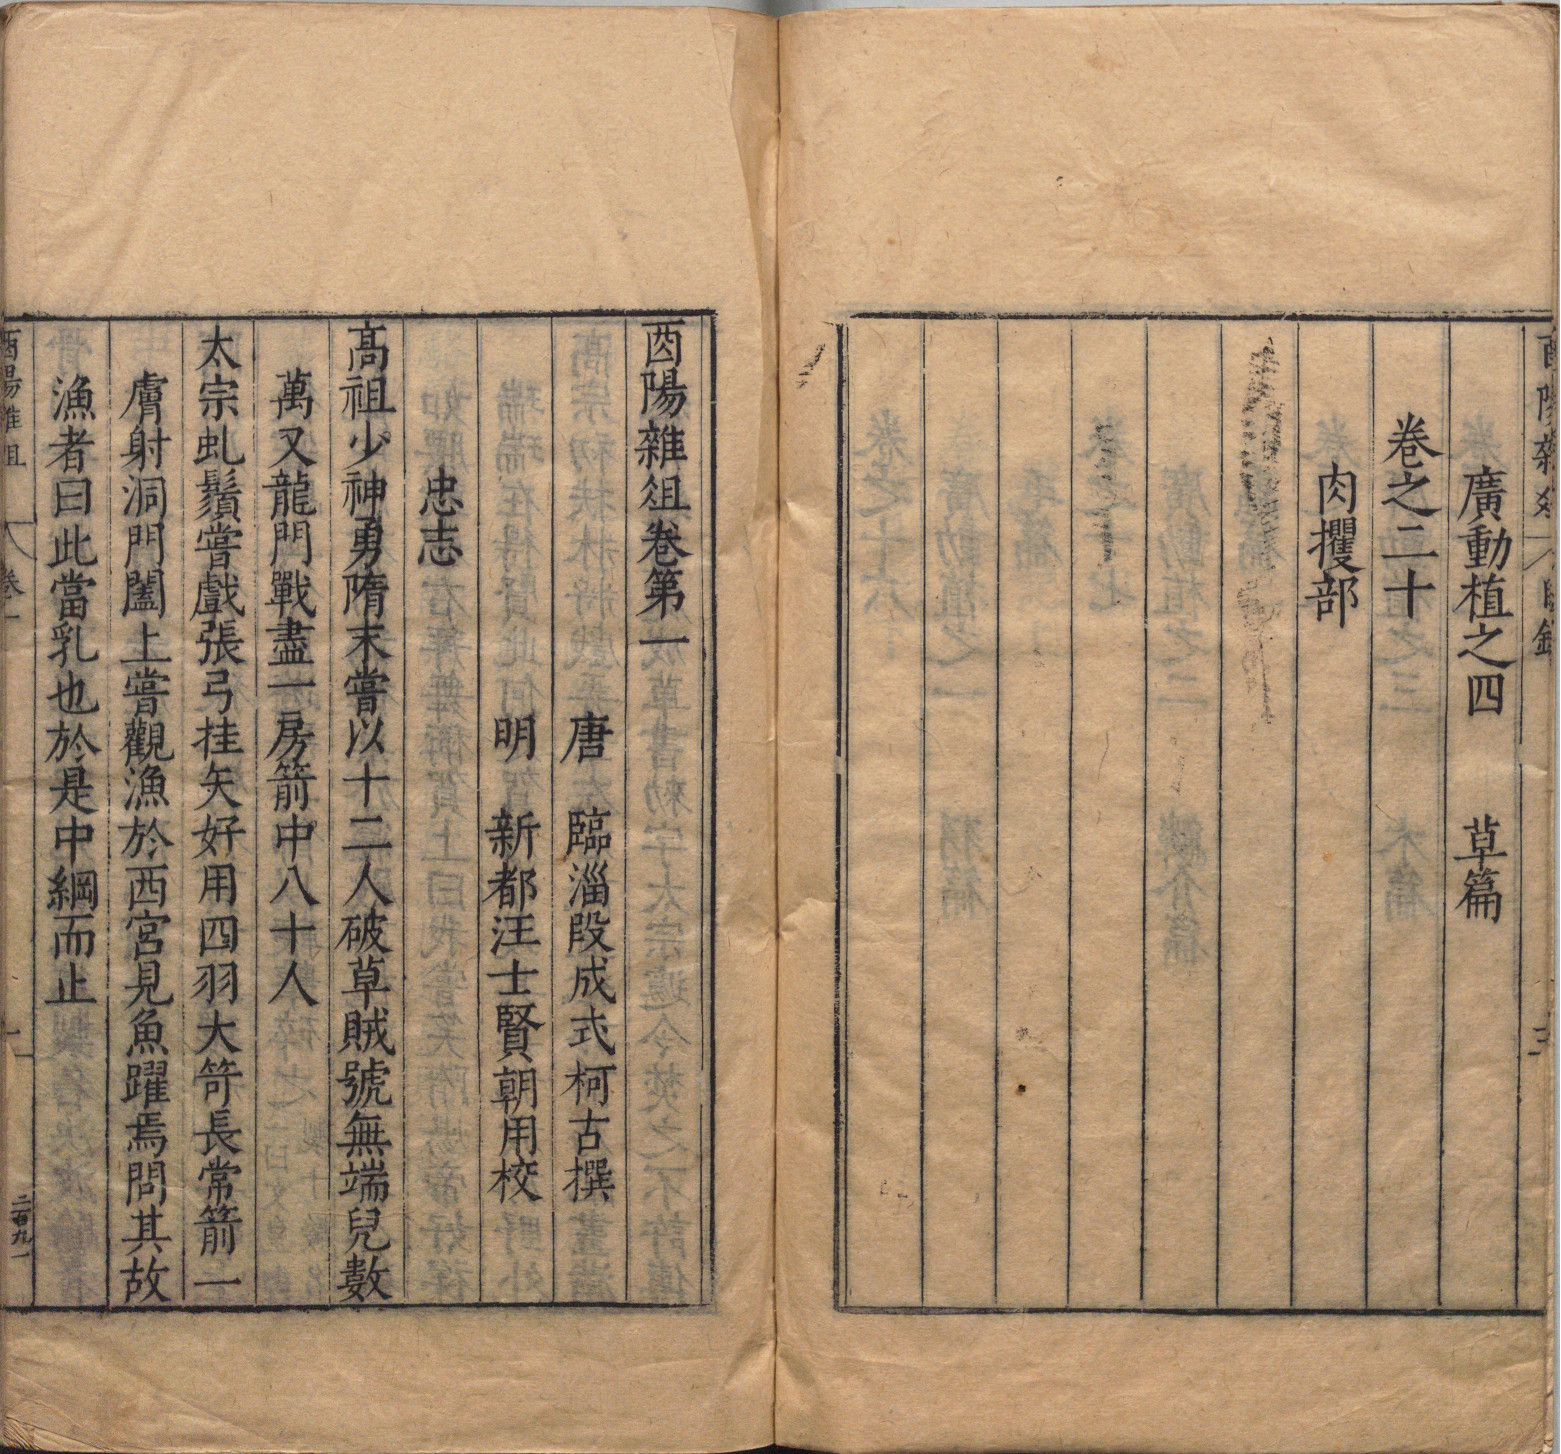 廣動植之四 草篇
卷之二十
肉攫部
酉陽雜俎卷第一
唐 臨淄段成式柯古撰
明 新都汪士賢朝用校
忠志
高祖少神勇隋末嘗以十二人破草賊號無端兒數
萬又龍門戰盡一房箭中八十人
太宗虬鬚嘗戲張弓挂矢好用四羽大笴長常箭一
膚射洞門闔上嘗觀漁於西宮見魚躍焉問其故
漁者曰此當乳也於是中網而止
酉陽雜俎 卷一 一
二百九一